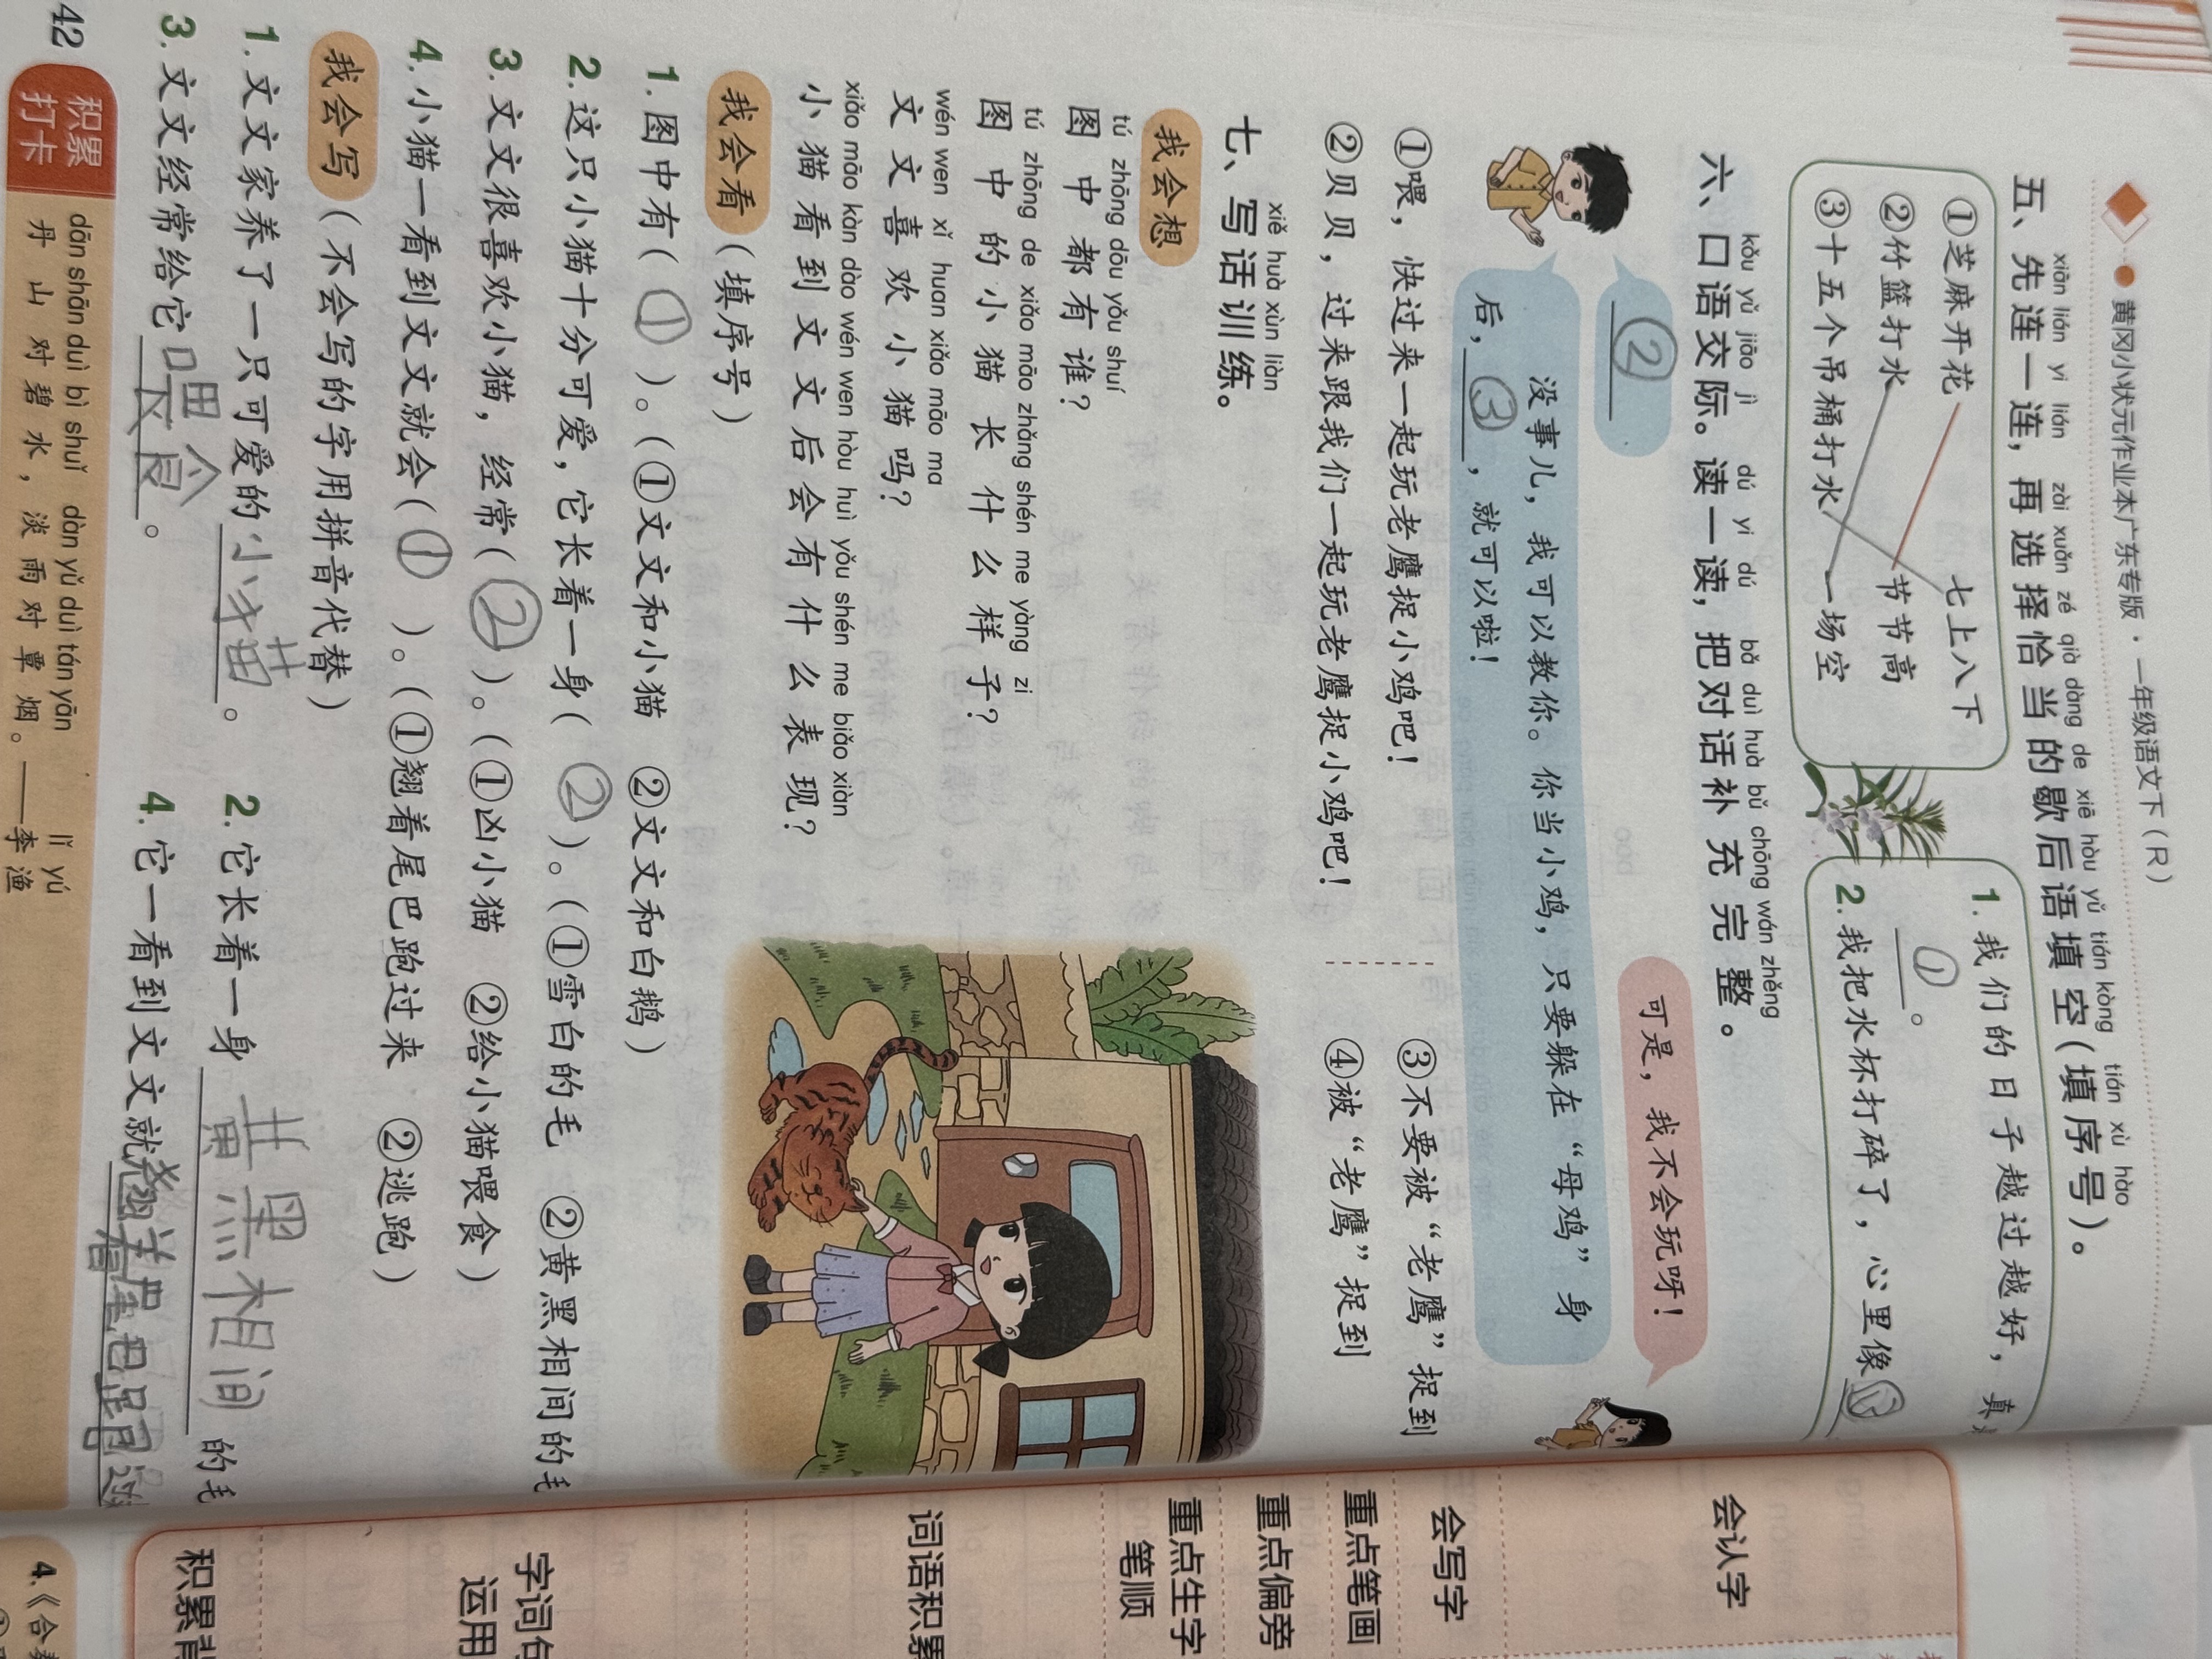 黄冈小状元作业本广东专版·一年级语文下(R)
xiān lián yi lián zài xuǎn zé qià dàng de xiē hòu yǔ tián kòng tián xù hào
五、先连一连,再选择恰当的歇后语填空(填序号)。
①芝麻开花 七上八下
②竹篮打水 节节高
③十五个吊桶打水 一场空
1.我们的日子越过越好,真
①。
2.我把水杯打碎了,心里像
kǒu yǔ jiāo jì dú yi dú bǎ duì huà bǔ chōng wán zhěng
六、口语交际。读一读,把对话补充完整。
②
可是,我不会玩呀!
没事儿,我可以教你。你当小鸡,只要躲在“母鸡”身
后,③,就可以啦!
①喂,快过来一起玩老鹰捉小鸡吧! ③不要被“老鹰”捉到
②贝贝,过来跟我们一起玩老鹰捉小鸡吧! ④被“老鹰”捉到
xiě huà xùn liàn
七、写话训练。
我会想
tú zhōng dōu yǒu shuí
图中都有谁?
tú zhōng de xiǎo māo zhǎng shén me yàng zi
图中的小猫长什么样子?
wén wen xǐ huan xiǎo māo ma
文文喜欢小猫吗?
xiǎo māo kàn dào wén wen hòu huì yǒu shén me biǎo xiàn
小猫看到文文后会有什么表现?
我会看(填序号)
1.图中有(①)。(①文文和小猫 ②文文和白鹅)
2.这只小猫十分可爱,它长着一身(②)。(①雪白的毛 ②黄黑相间的毛
3.文文很喜欢小猫,经常(②)。(①凶小猫 ②给小猫喂食)
4.小猫一看到文文就会(①)。(①翘着尾巴跑过来 ②逃跑)
我会写(不会写的字用拼音代替)
1.文文家养了一只可爱的小猫。 2.它长着一身黄黑相间的毛
3.文文经常给它喂食。 4.它一看到文文就翘着尾巴跑过
42
积累打卡
dān shān duì bì shuǐ dàn yǔ duì tán yān lǐ yú
丹山对碧水,淡雨对覃烟。——李渔
会认字
会写字
重点笔画
重点偏旁
重点生字
笔顺
词语积累
字词句
运用
积累背
4.《合